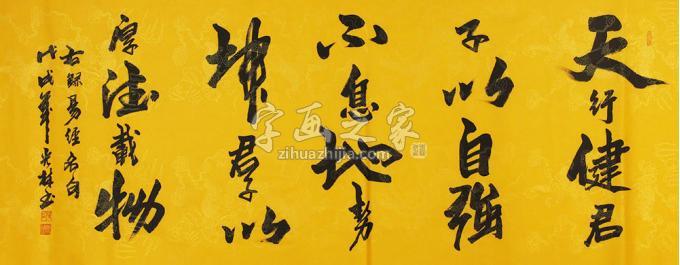 天行健君
子以自強
不息地勢
坤君子以
厚德載物
右錄易經名句
戊戌年
字画之家
zihuazhijia.com